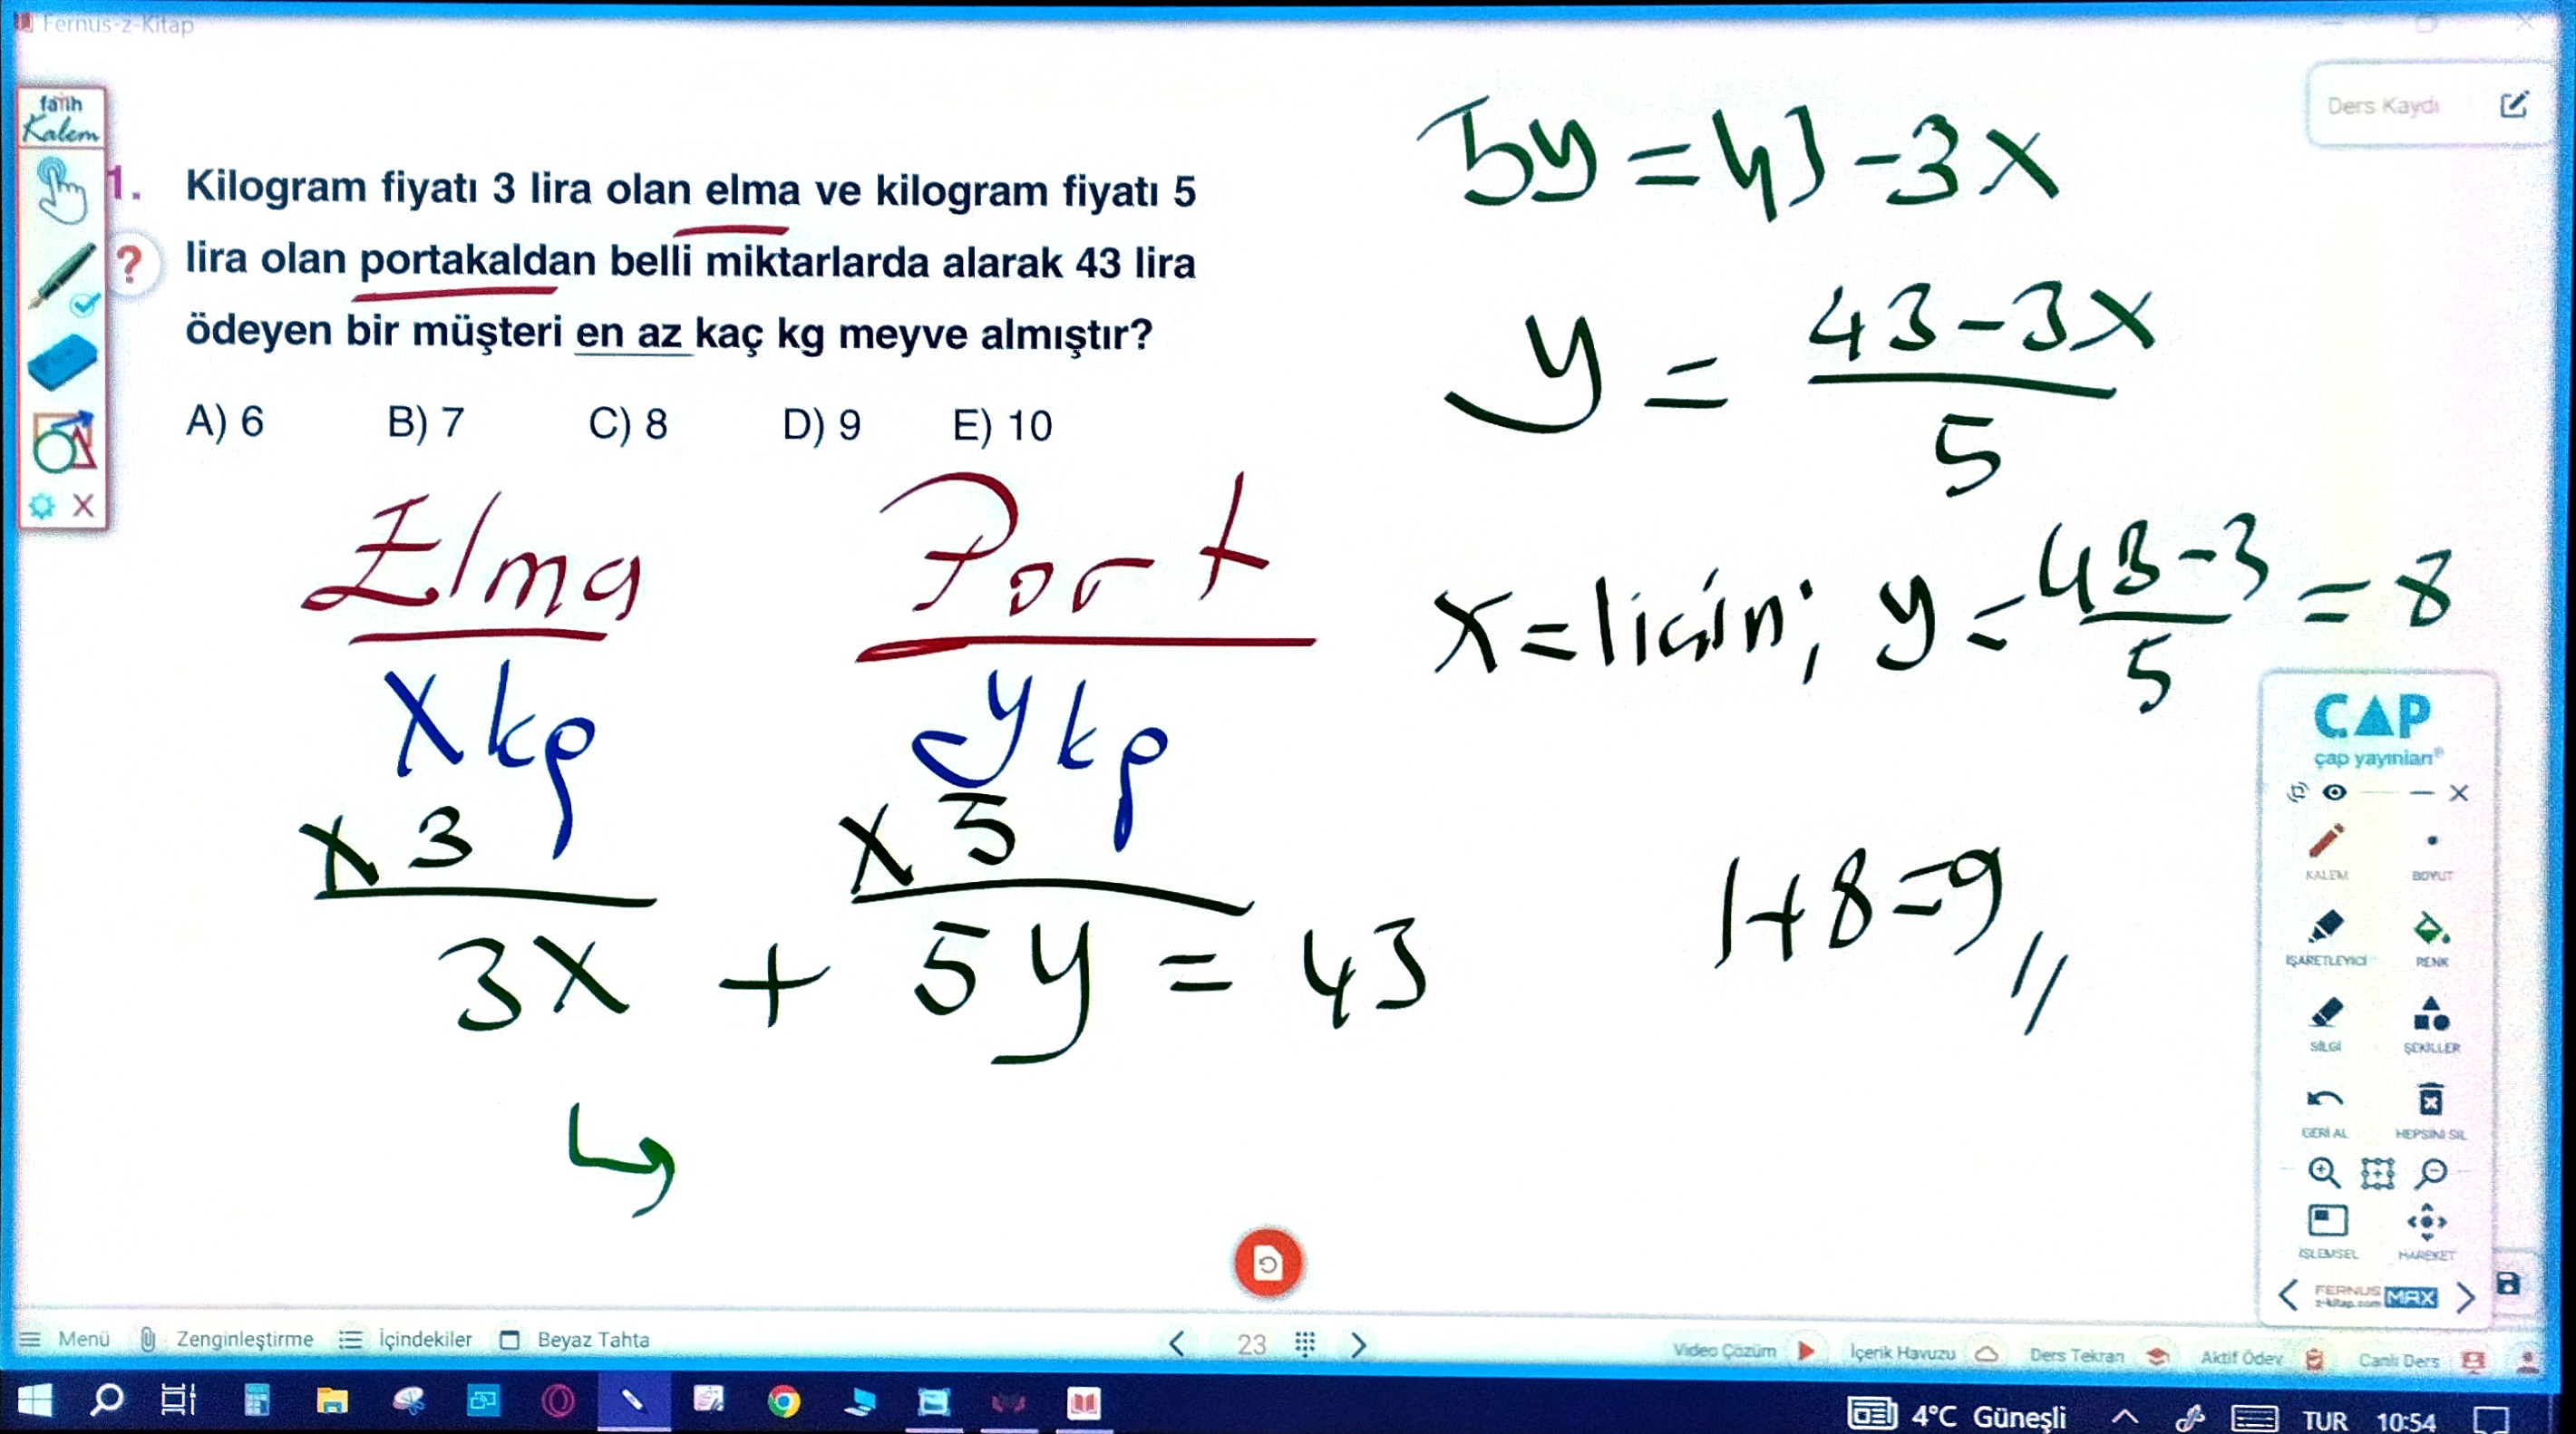 Fernus-z-Kitap
fatih
Kalem
Ders Kaydı
1. Kilogram fiyatı 3 lira olan elma ve kilogram fiyatı 5
? lira olan portakaldan belli miktarlarda alarak 43 lira
ödeyen bir müşteri en az kaç kg meyve almıştır?
A) 6 B) 7 C) 8 D) 9 E) 10
Elma Port
x kg y kg
x 3 x 5
3x + 5y = 43
5y = 43 - 3x
y = 43 - 3x
5
x = 1 için; y = 43 - 3 = 8
5
1 + 8 = 9 //
CAP
çap yayınları
KALEM BOYUT
İŞARETLEYİCİ RENK
SİLGİ ŞEKİLLER
GERİ AL HEPSİNİ SİL
İŞLEMSEL HAREKET
FERNUS MAX
z-kitap.com
Menü Zenginleştirme İçindekiler Beyaz Tahta 23 Video Çözüm İçerik Havuzu Ders Tekrarı Aktif Ödev Canlı Ders
4°C Güneşli TUR 10:54